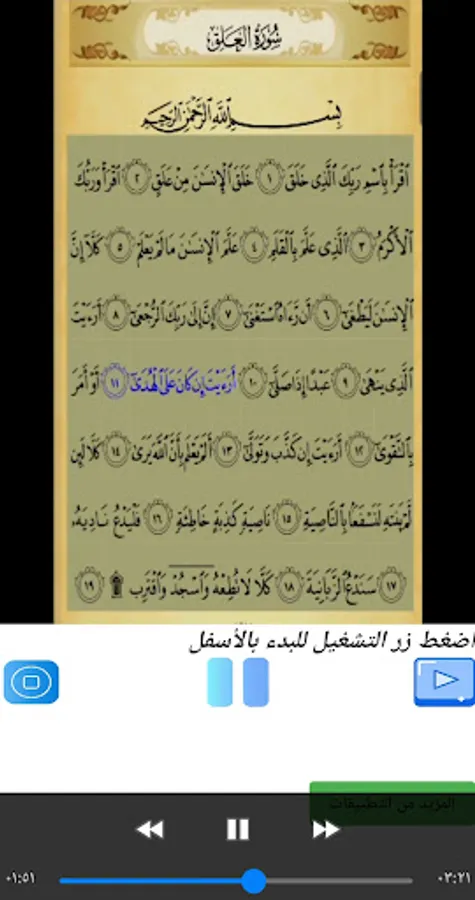 سُورَةُ العَلَقِ
بِسْمِ ٱللَّهِ ٱلرَّحْمَٰنِ ٱلرَّحِيمِ
ٱقْرَأْ بِٱسْمِ رَبِّكَ ٱلَّذِى خَلَقَ ١ خَلَقَ ٱلْإِنسَٰنَ مِنْ عَلَقٍ ٢ ٱقْرَأْ وَرَبُّكَ
ٱلْأَكْرَمُ ٣ ٱلَّذِى عَلَّمَ بِٱلْقَلَمِ ٤ عَلَّمَ ٱلْإِنسَٰنَ مَا لَمْ يَعْلَمْ ٥ كَلَّآ إِنَّ
ٱلْإِنسَٰنَ لَيَطْغَىٰٓ ٦ أَن رَّءَاهُ ٱسْتَغْنَىٰٓ ٧ إِنَّ إِلَىٰ رَبِّكَ ٱلرُّجْعَىٰٓ ٨ أَرَءَيْتَ
ٱلَّذِى يَنْهَىٰ ٩ عَبْدًا إِذَا صَلَّىٰٓ ١٠ أَرَءَيْتَ إِن كَانَ عَلَى ٱلْهُدَىٰٓ ١١ أَوْ أَمَرَ
بِٱلتَّقْوَىٰٓ ١٢ أَرَءَيْتَ إِن كَذَّبَ وَتَوَلَّىٰٓ ١٣ أَلَمْ يَعْلَم بِأَنَّ ٱللَّهَ يَرَىٰ ١٤ كَلَّا لَئِن
لَّمْ يَنتَهِ لَنَسْفَعًۢا بِٱلنَّاصِيَةِ ١٥ نَاصِيَةٍ كَٰذِبَةٍ خَاطِئَةٍ ١٦ فَلْيَدْعُ نَادِيَهُۥ
١٧ سَنَدْعُ ٱلزَّبَانِيَةَ ١٨ كَلَّا لَا تُطِعْهُ وَٱسْجُدْ وَٱقْتَرِب ۩ ١٩
اضغط زر التشغيل للبدء بالأسفل
المزيد من التطبيقات
٠١:٥١
٠٣:٢١